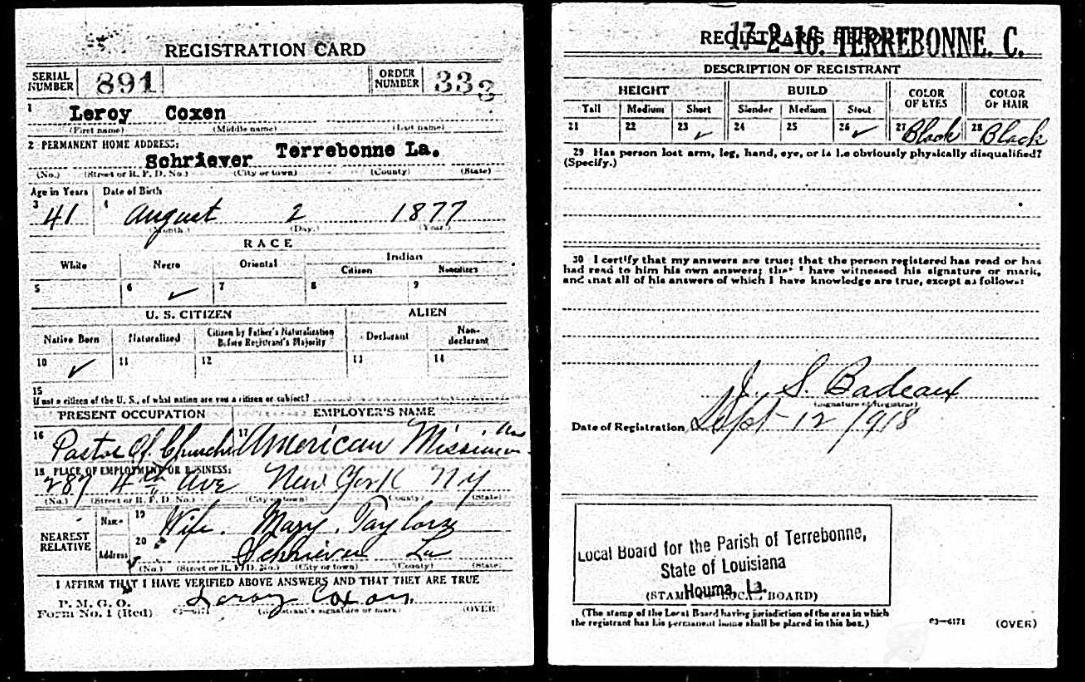 REGISTRATION CARD
SERIAL NUMBER 891 ORDER NUMBER 333
1 Leroy Coxen
(First name) (Middle name) (Last name)
2 PERMANENT HOME ADDRESS:
Schriever Terrebonne La.
(No.) (Street or R. F. D. No.) (City or town) (County) (State)
Age in Years Date of Birth
3 41 4 August 2 1877
(Month.) (Day.) (Year.)
RACE
White Negro Oriental Indian
Citizen Noncitizen
5 6 ✓ 7 8 9
U. S. CITIZEN ALIEN
Native Born Naturalized Citizen by Father's Naturalization Before Registrant's Majority Declarant Non-declarant
10 ✓ 11 12 13 14
15
If not a citizen of the U. S., of what nation are you a citizen or subject?
PRESENT OCCUPATION EMPLOYER'S NAME
16 Pastor Of Church 17 American Missionary
18 PLACE OF EMPLOYMENT OR BUSINESS:
287 4th Ave New York NY
(No.) (Street or R. F. D. No.) (City or town) (County) (State)
NEAREST RELATIVE
Name 19 Wife. Mary.
Address 20 Schriever La
(No.) (Street or R. F. D. No.) (City or town) (County) (State)
I AFFIRM THAT I HAVE VERIFIED ABOVE ANSWERS AND THAT THEY ARE TRUE
P. M. G. O.
Form No. 1 (Red) Leroy Coxen (Registrant's signature or mark) (OVER)
REGISTRAR'S REPORT
17-2-16. TERREBONNE. C.
DESCRIPTION OF REGISTRANT
HEIGHT BUILD COLOR OF EYES COLOR OF HAIR
Tall Medium Short Slender Medium Stout
21 22 23 ✓ 24 25 26 ✓ 27 Black 28 Black
29 Has person lost arm, leg, hand, eye, or is he obviously physically disqualified?
(Specify.)
30 I certify that my answers are true; that the person registered has read or has
had read to him his own answers; that I have witnessed his signature or mark,
and that all of his answers of which I have knowledge are true, except as follows:
J. S. Badeaux
(Signature of Registrar)
Date of Registration Sept 12 1918
Local Board for the Parish of Terrebonne,
State of Louisiana
Houma, La.
(STAMP OF LOCAL BOARD)
(The stamp of the Local Board having jurisdiction of the area in which
the registrant has his permanent home shall be placed in this box.)
63—6171 (OVER)